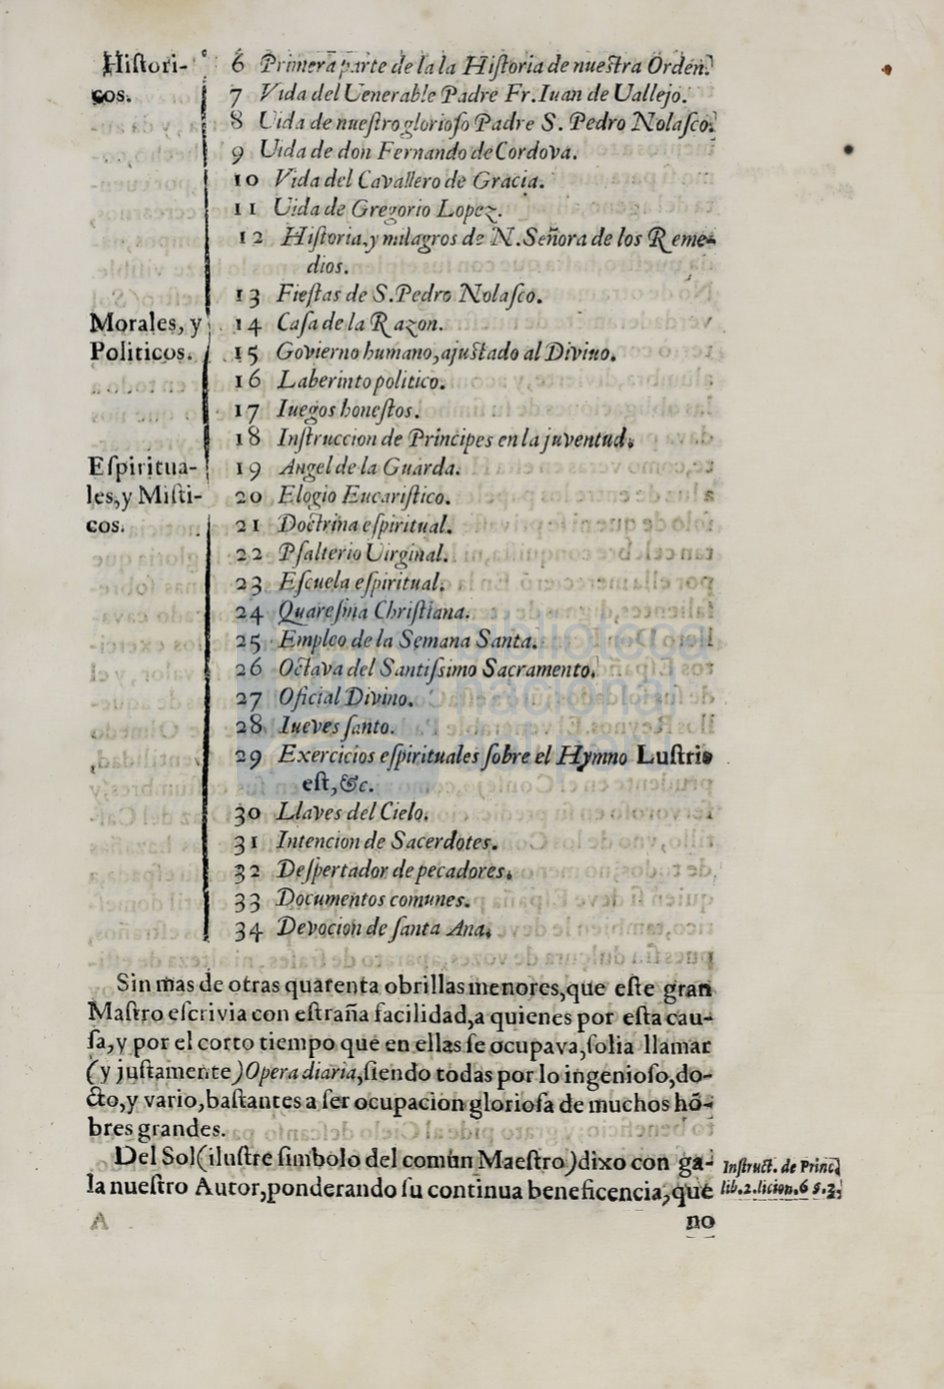 Hiſtori- 6 Primera parte de la la Hiſtoria de nueſtra Orden.
cos. 7 Vida del Uenerable Padre Fr. Iuan de Uallejo.
8 Uida de nueſtro glorioſo Padre S. Pedro Nolaſco.
9 Uida de don Fernando de Cordova.
10 Vida del Cavallero de Gracia.
11 Uida de Gregorio Lopez.
12 Hiſtoria, y milagros de N. Señora de los Reme-
dios.
13 Fieſtas de S. Pedro Nolaſco.
Morales, y 14 Caſa de la Razon.
Politicos. 15 Govierno humano, ajuſtado al Divino.
16 Laberinto politico.
17 Iuegos honeſtos.
18 Inſtruccion de Principes en la juventud.
Eſpiritua- 19 Angel de la Guarda.
les, y Miſti- 20 Elogio Eucariſtico.
cos. 21 Doctrina eſpiritual.
22 Pſalterio Uirginal.
23 Eſcuela eſpiritual.
24 Quareſma Chriſtiana.
25 Empleo de la Semana Santa.
26 Octava del Santiſsimo Sacramento.
27 Oficial Divino.
28 Iueves ſanto.
29 Exercicios eſpirituales ſobre el Hymno Luſtris
eſt, &c.
30 Llaves del Cielo.
31 Intencion de Sacerdotes.
32 Deſpertador de pecadores.
33 Documentos comunes.
34 Devocion de ſanta Ana.
Sin mas de otras quarenta obrillas menores, que eſte gran
Maſtro eſcrivia con eſtraña facilidad, a quienes por eſta cau-
ſa, y por el corto tiempo que en ellas ſe ocupava, ſolia llamar
(y juſtamente) Opera diaria, ſiendo todas por lo ingenioſo, do-
cto, y vario, baſtantes a ſer ocupacion glorioſa de muchos hõ-
bres grandes.
Del Sol (iluſtre ſimbolo del comun Maeſtro) dixo con ga-
la nueſtro Autor, ponderando ſu continua beneficencia, que
Inſtruct. de Princ.
lib. 2. licion. 6 §. 3.
A no